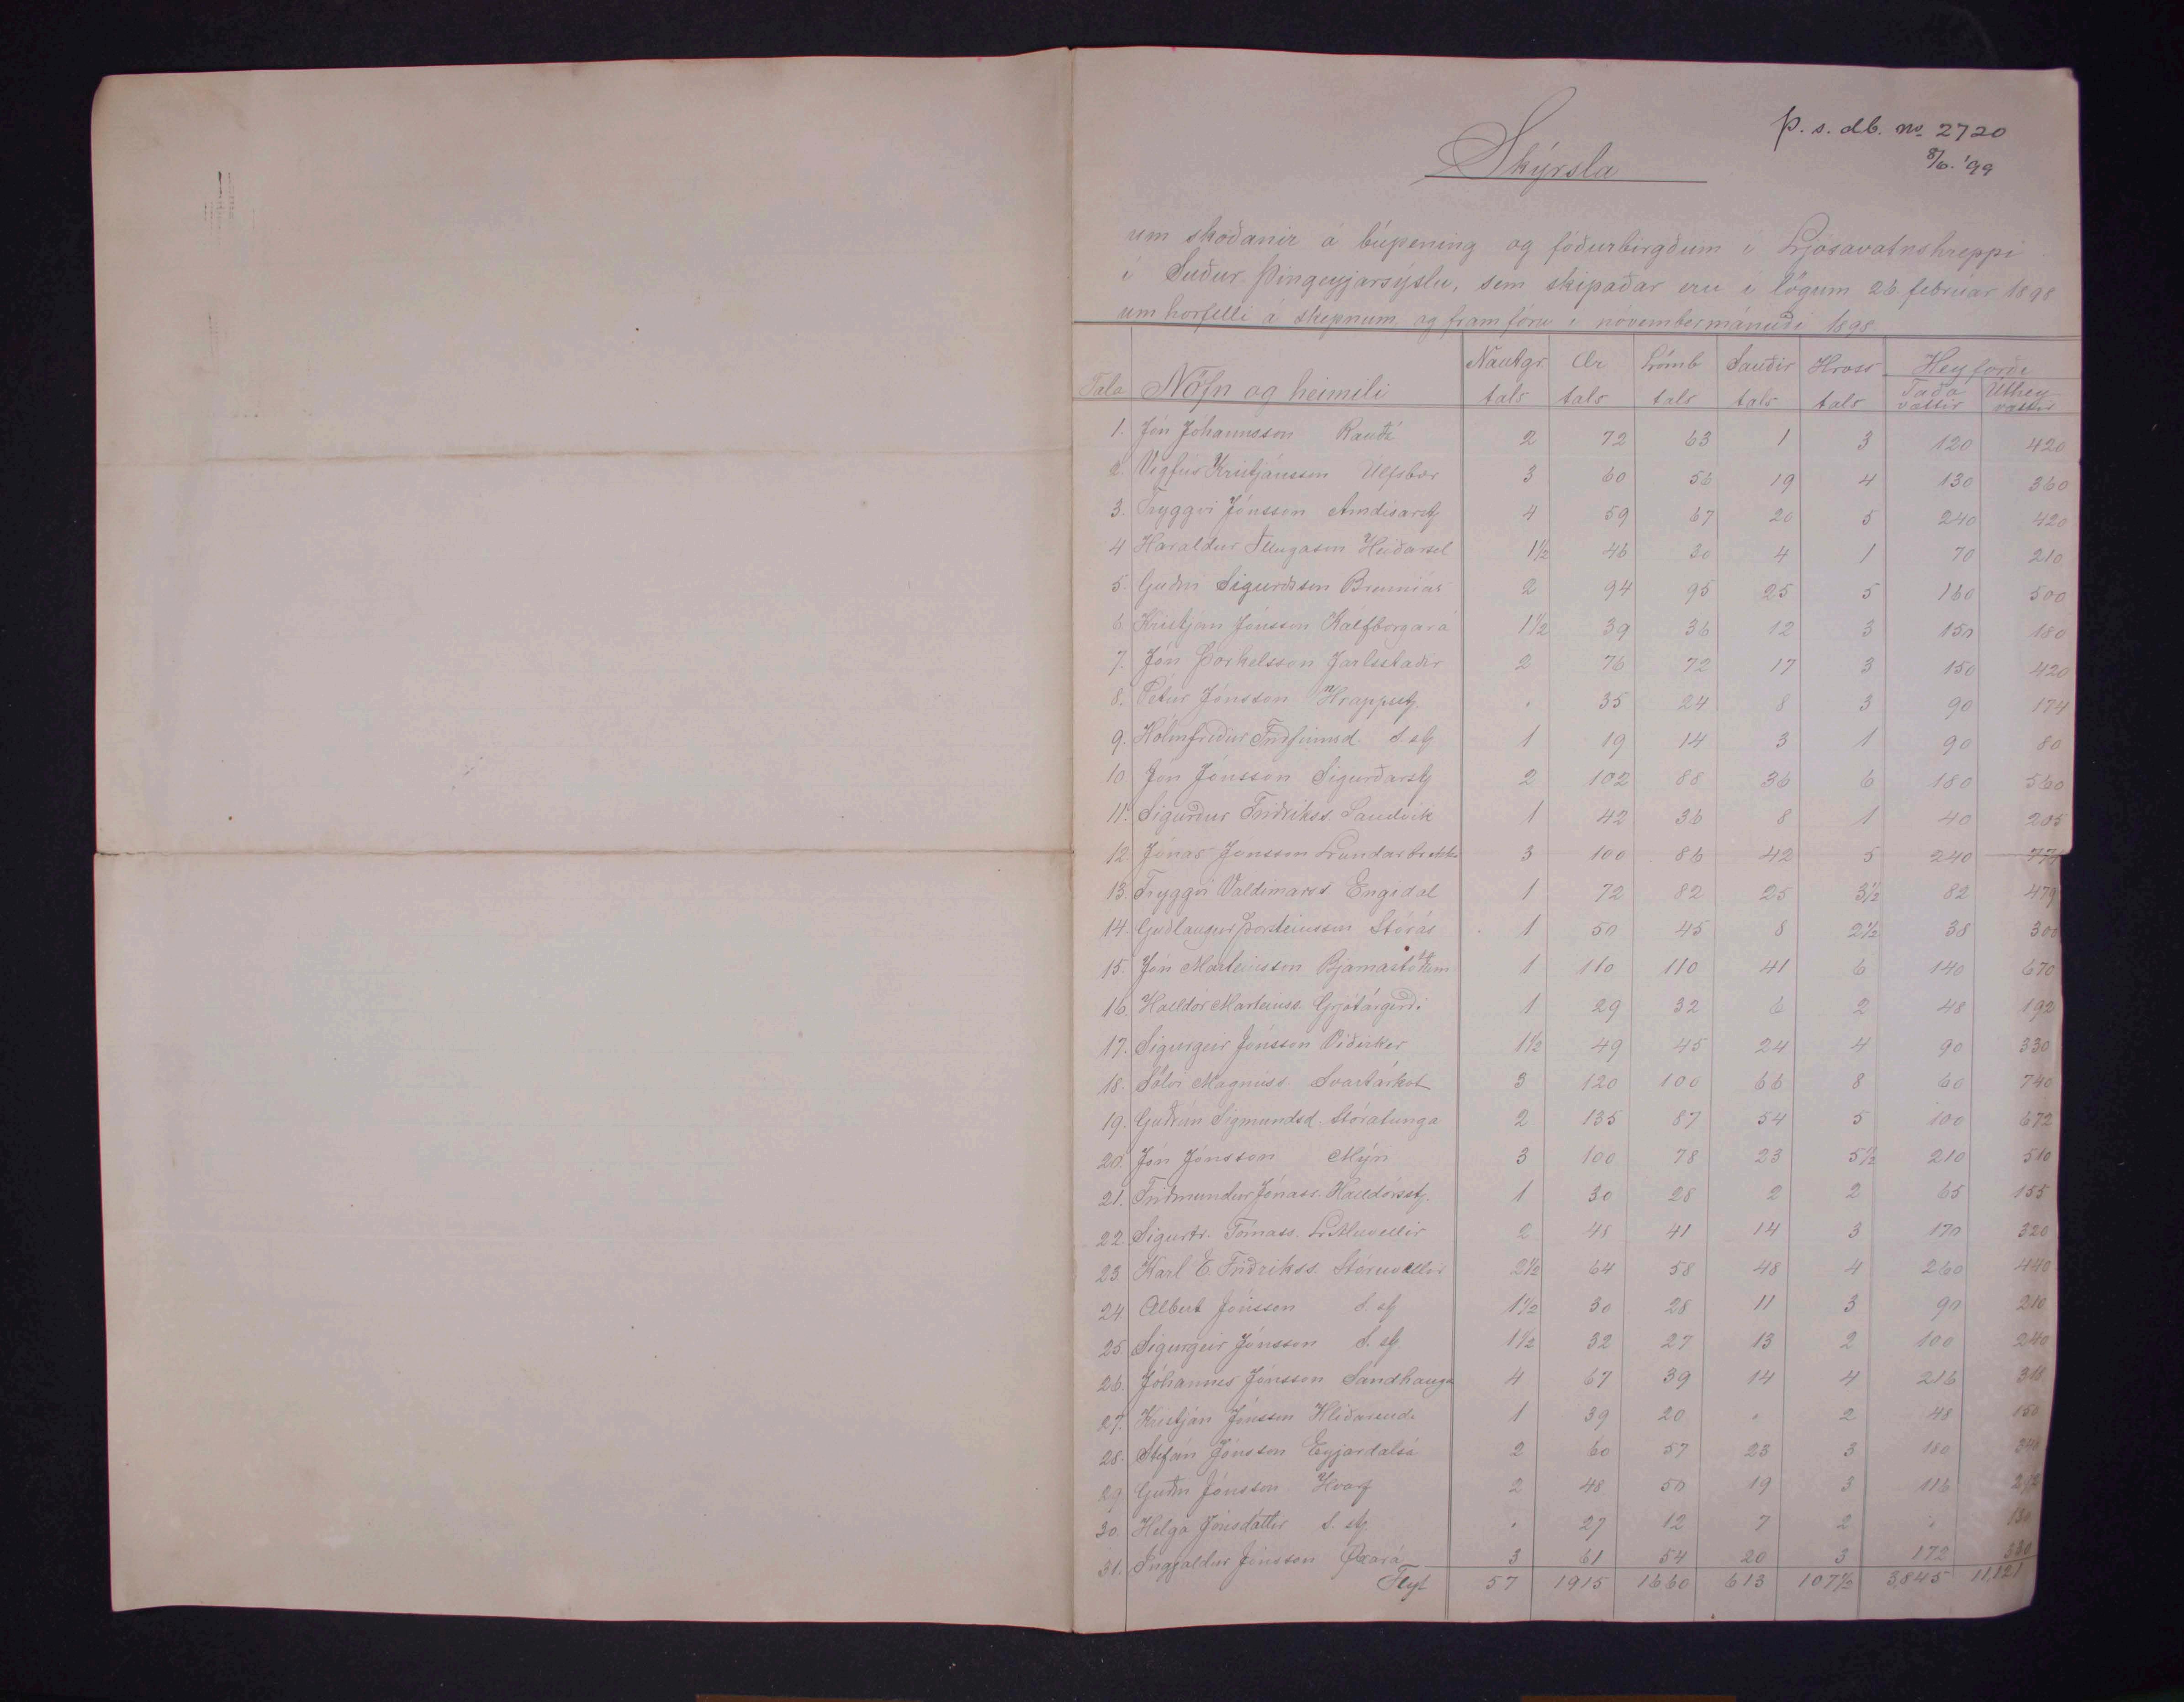 Þ. s. db. no. 2720
8/6. '99
Skýrsla
um skoðanir á búpening og fóðurbirgðum í Ljósavatnshreppi
í Suður Þingeyjarsýslu, sem skipaðar eru í lögum 26. febrúar 1898
um horfelli á skepnum og fram fóru í nóvembermánuði 1898
Tala Nöfn og heimili Nautgr. tals Ær tals Lömb tals Sauðir tals Hross tals Hey forði Taða vættir Úthey vættir
1. Jón Jóhannsson Rauðá 2 72 63 1 3 120 420
2. Vigfús Kristjánsson Úlfsbær 3 60 56 19 4 130 360
3. Tryggvi Jónsson Arndísarstj 4 59 67 20 5 240 420
4 Haraldur Illugason Heiðarsel 1½ 46 30 4 1 70 210
5. Guðni Sigurðsson Brenniás 2 94 95 25 5 160 500
6. Kristján Jónsson Kálfborgará 1½ 39 36 12 3 150 180
7. Jón Þorkelsson Jarlsstaðir 2 76 72 17 3 150 420
8. Pétur Jónsson Hrappstj. " 35 24 8 3 90 174
9. Hólmfríður Indfinnsd. S. stj 1 19 14 3 1 90 80
10. Jón Jónsson Sigurðarstj 2 102 88 36 6 180 560
11. Sigurður Friðrikss. Sandvík 1 42 36 8 1 40 205
12. Jónas Jónsson Lundarbrekka 3 100 86 42 5 240
13. Tryggvi Valdimarss Engidal 1 72 82 25 3½ 82 479
14. Guðlaugur Þorsteinsson Stórás 1 50 45 8 2½ 38 300
15. Jón Marteinsson Bjarnastöðum 1 110 110 41 6 140 670
16. Halldór Marteinss. Grjótárgerði 1 29 32 6 2 48 192
17. Sigurgeir Jónsson Víðirker 1½ 49 45 24 4 90 330
18. Sölvi Magnúss. Svartárkot 3 120 100 66 8 60 740
19. Guðrún Sigmundsd. Stóratunga 2 135 87 54 5 100 672
20. Jón Jónsson Mýri 3 100 78 23 5½ 210 510
21. Friðmundur Jónass. Halldórsstj. 1 30 28 2 2 65 155
22. Sigurtr. Tómass. Litluvellir 2 48 41 14 3 170 320
23. Karl E Friðrikss. Stóruvellir 2½ 64 58 48 4 260 440
24 Albert Jónsson S. stj 1½ 30 28 11 3 90 210
25. Sigurgeir Jónsson S. stj 1½ 32 27 13 2 100 240
26. Jóhannes Jónsson Sandhauga 4 67 39 14 4 216 318
27. Kristján Jónsson Hlíðarend. 1 39 20 " 2 48 150
28. Stefán Jónsson Eyjardalsá 2 60 57 23 3 180 348
29. Guðni Jónsson Hvarf 2 48 50 19 3 116 292
30. Helga Jónsdóttir S. stj " 27 12 7 2 " 130
31. Ingjaldur Jónsson Øxará 3 61 54 20 3 172 330
Flyt 57 1915 1660 613 107½ 3,845 11,121